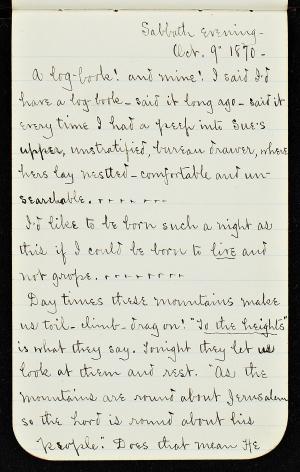 Sabbath evening -
Oct. 9" 1870 -
A log-book! and mine! I said I'd
have a log book - said it long ago - said it
every time I had a peep into Sue's
upper, unstratified, bureau drawer, where
hers lay nestled - comfortable and un-
searchable. - - - - - - -
I'd like to be born such a night as
this if I could be born to live and
not grope. - - - - - - - -
Day times these mountains make
us toil - climb - drag on! "To the heights"
is what they say. Tonight they let us
look at them and rest. "As the
mountains are round about Jerusalem
so the Lord is round about his
people." Does that mean He